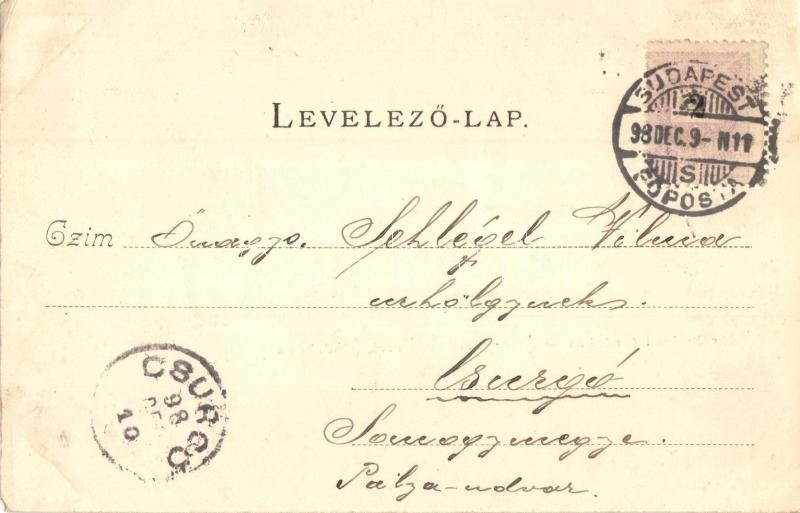 LEVELEZŐ-LAP.
BUDAPEST
2
98 DEC. 9 - N11
S
FŐPOSTA
Czim Őnagys. Schlégel Vilma
urhölgynek.
Csurgó
Somogymegye.
Pálya-udvar.
CSURGÓ
98
DEC
10